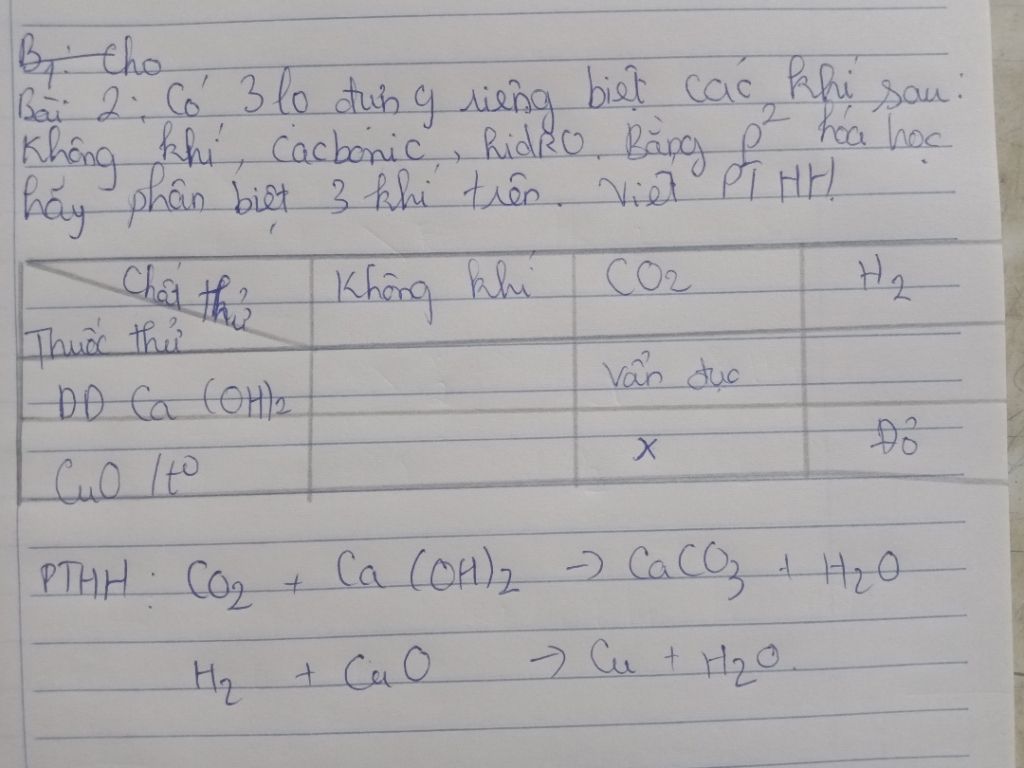 B1: Cho
Bài 2: Có 3 lo đựng riêng biệt các khí sau:
Không khí, cacbonic, hidRO. Bằng p² hóa học
hãy phân biệt 3 khí trên. Viết PTHH!
Chất thử Không khí CO2 H2
Thuốc thử
DD Ca (OH)2 Vẩn đục
CuO /t⁰ x Đỏ
PTHH: CO2 + Ca (OH)2 → CaCO3 + H2O
H2 + CuO → Cu + H2O.